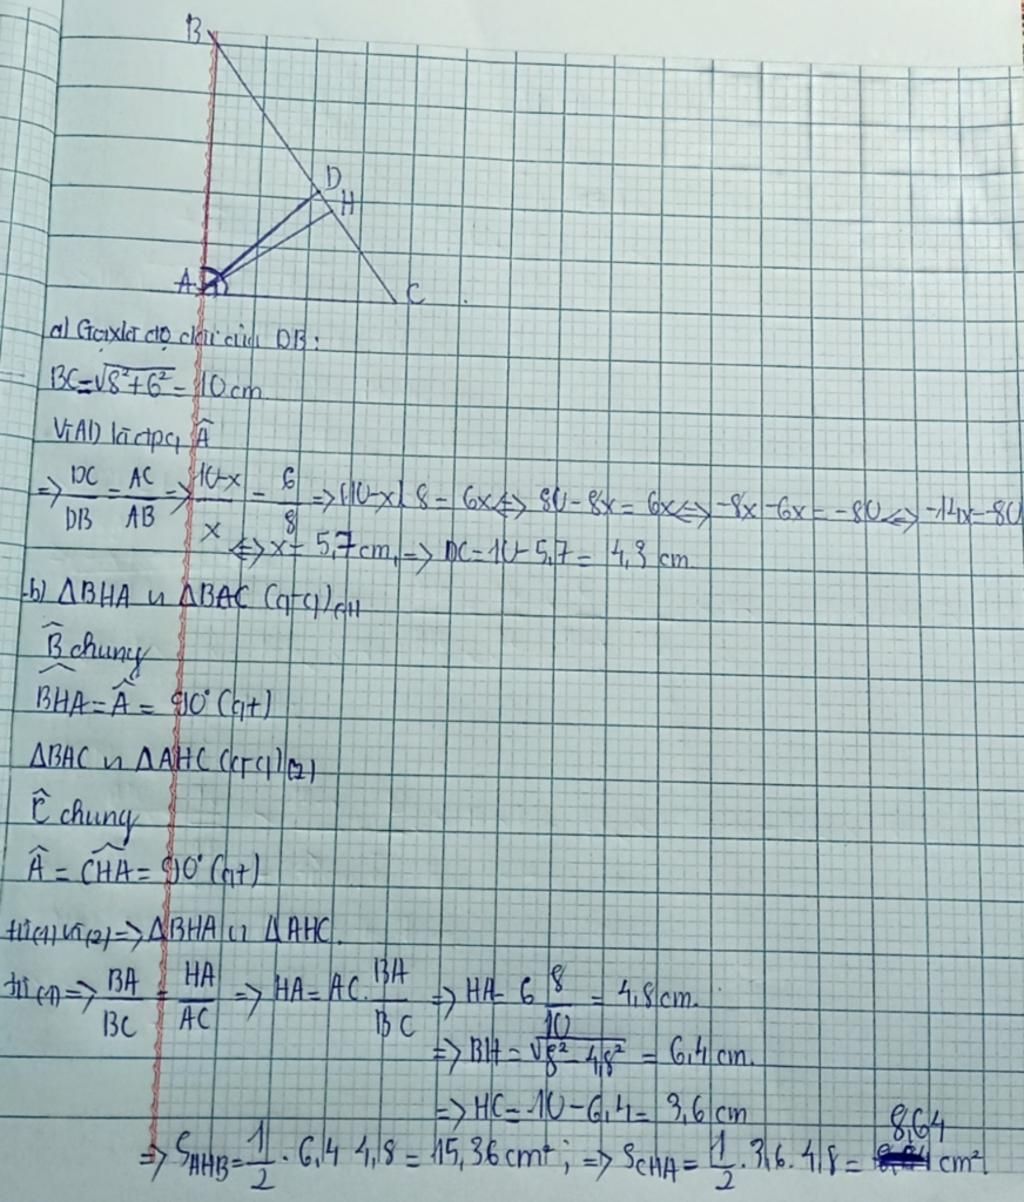 B
D
H
A
C
a) Gọi x là độ dài của DB:
BC = √8²+6² = 10 cm
Vì AD là đpg Â
=> DC/DB = AC/AB => 10-x/x = 6/8 => (10-x).8 = 6x <=> 80-8x = 6x <=> -8x-6x = -80 <=> -14x = -80
<=> x = 5,7 cm, => DC = 10-5,7 = 4,3 cm
b) ΔBHA ∽ ΔBAC (g-g) (1)
B̂ chung
BHA = Â = 90° (gt)
ΔBAC ∽ ΔAHC (g-g) (2)
Ĉ chung
Â = CHA = 90° (gt)
từ (1) và (2) => ΔBHA ∽ ΔAHC.
từ (1) => BA/BC = HA/AC => HA = AC. BA/BC => HA = 6 8/10 = 4,8 cm.
=> BH = √8²-4,8² = 6,4 cm.
=> HC = 10-6,4 = 3,6 cm
=> S_AHB = 1/2 . 6,4 4,8 = 15,36 cm²; => S_CHA = 1/2 . 3,6 . 4,8 = 8,64 cm².